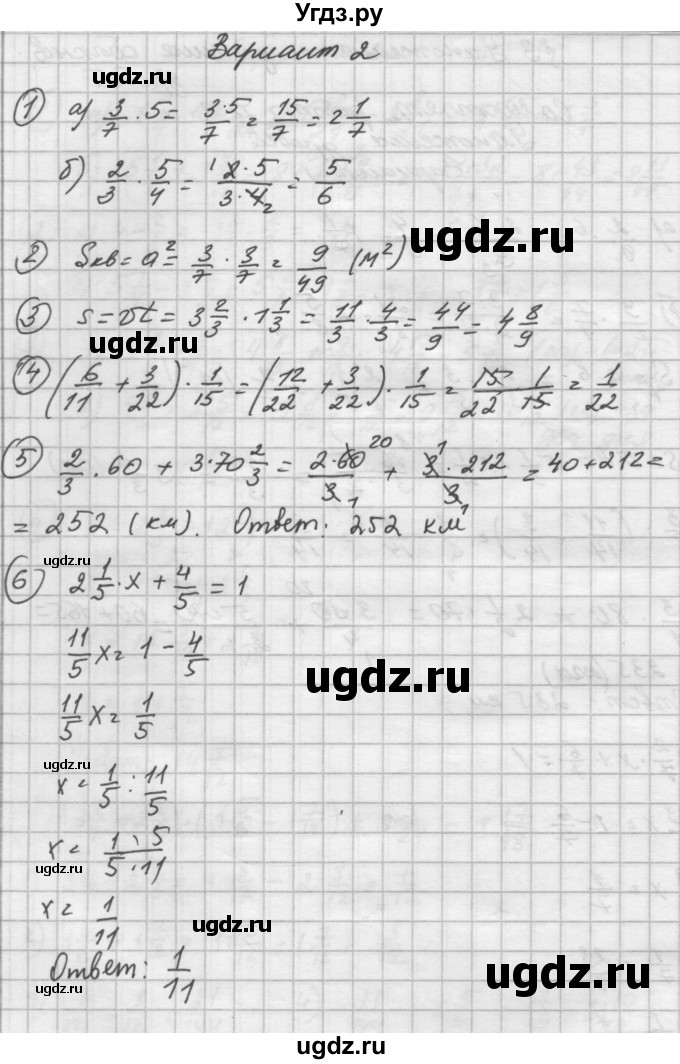 Угдз.ру
Вариант 2
ugdz.ru
① а) 3/7 · 5 = 3·5/7 = 15/7 = 2 1/7
б) 2/3 · 5/4 = ¹2·5/3·4₂ = 5/6
ugdz.ru
② Sкв = a² = 3/7 · 3/7 = 9/49 (м²)
③ s = vt = 3 2/3 · 1 1/3 = 11/3 · 4/3 = 44/9 = 4 8/9
ugdz.ru
④ (6/11 + 3/22) · 1/15 = (12/22 + 3/22) · 1/15 = 15 · 1/22 · 15 = 1/22
ugdz.ru
⑤ 2/3 · 60 + 3 · 70 2/3 = 2·60²⁰/3₁ + 3¹ · 212/3₁ = 40 + 212 =
= 252 (км). Ответ: 252 км
ugdz.ru
⑥ 2 1/5 · x + 4/5 = 1
11/5 x = 1 - 4/5
ugdz.ru
11/5 x = 1/5
ugdz.ru
x = 1/5 : 11/5
x = 1 · 5/5 · 11
ugdz.ru
x = 1/11
ugdz.ru
Ответ: 1/11
ugdz.ru
ugdz.ru
ugdz.ru